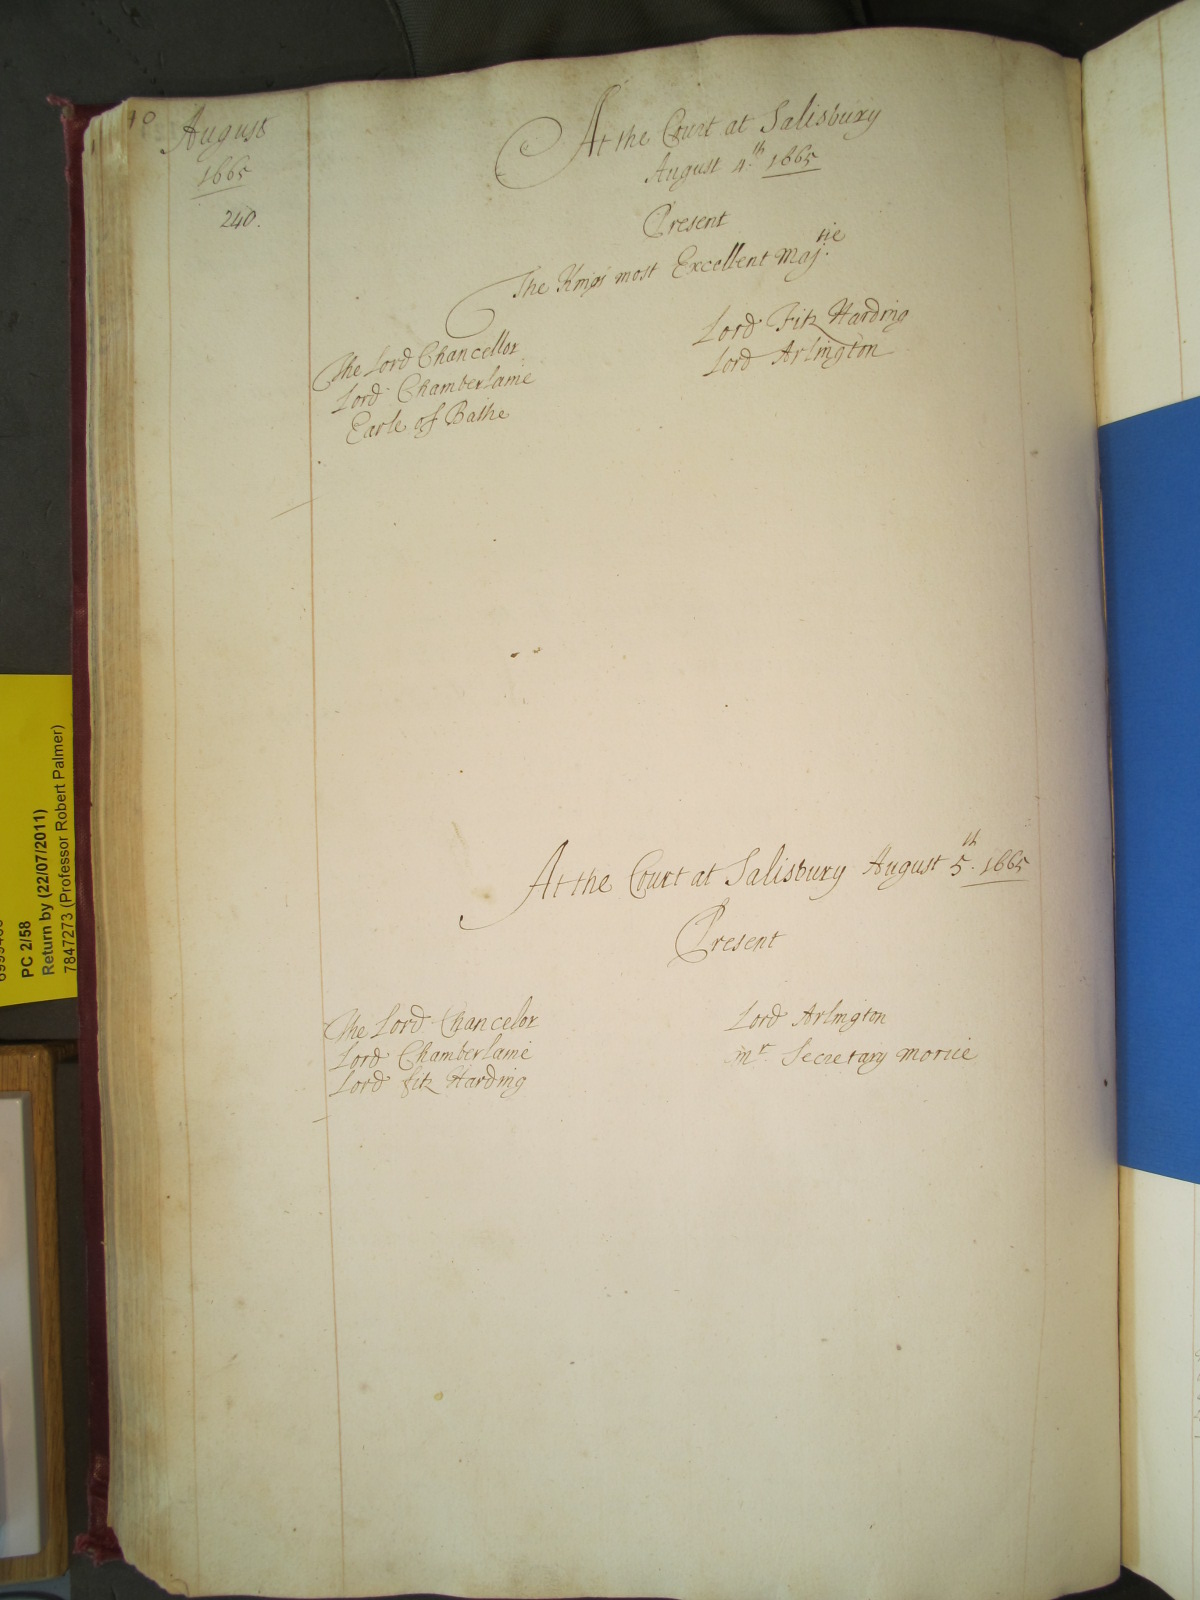 August
1665
240.
At the Court at Salisbury
August 4.th 1665
Present
The Kings most Excellent Maj.tie
The Lord Chancellor
Lord Chamberlaine
Earle of Bathe
Lord Fitz Harding
Lord Arlington
At the Court at Salisbury August 5.th 1665
Present
The Lord Chancelor
Lord Chamberlaine
Lord fitz Harding
Lord Arlington
Mr. Secretary Morice
PC 2/58
Return by (22/07/2011)
7847273 (Professor Robert Palmer)